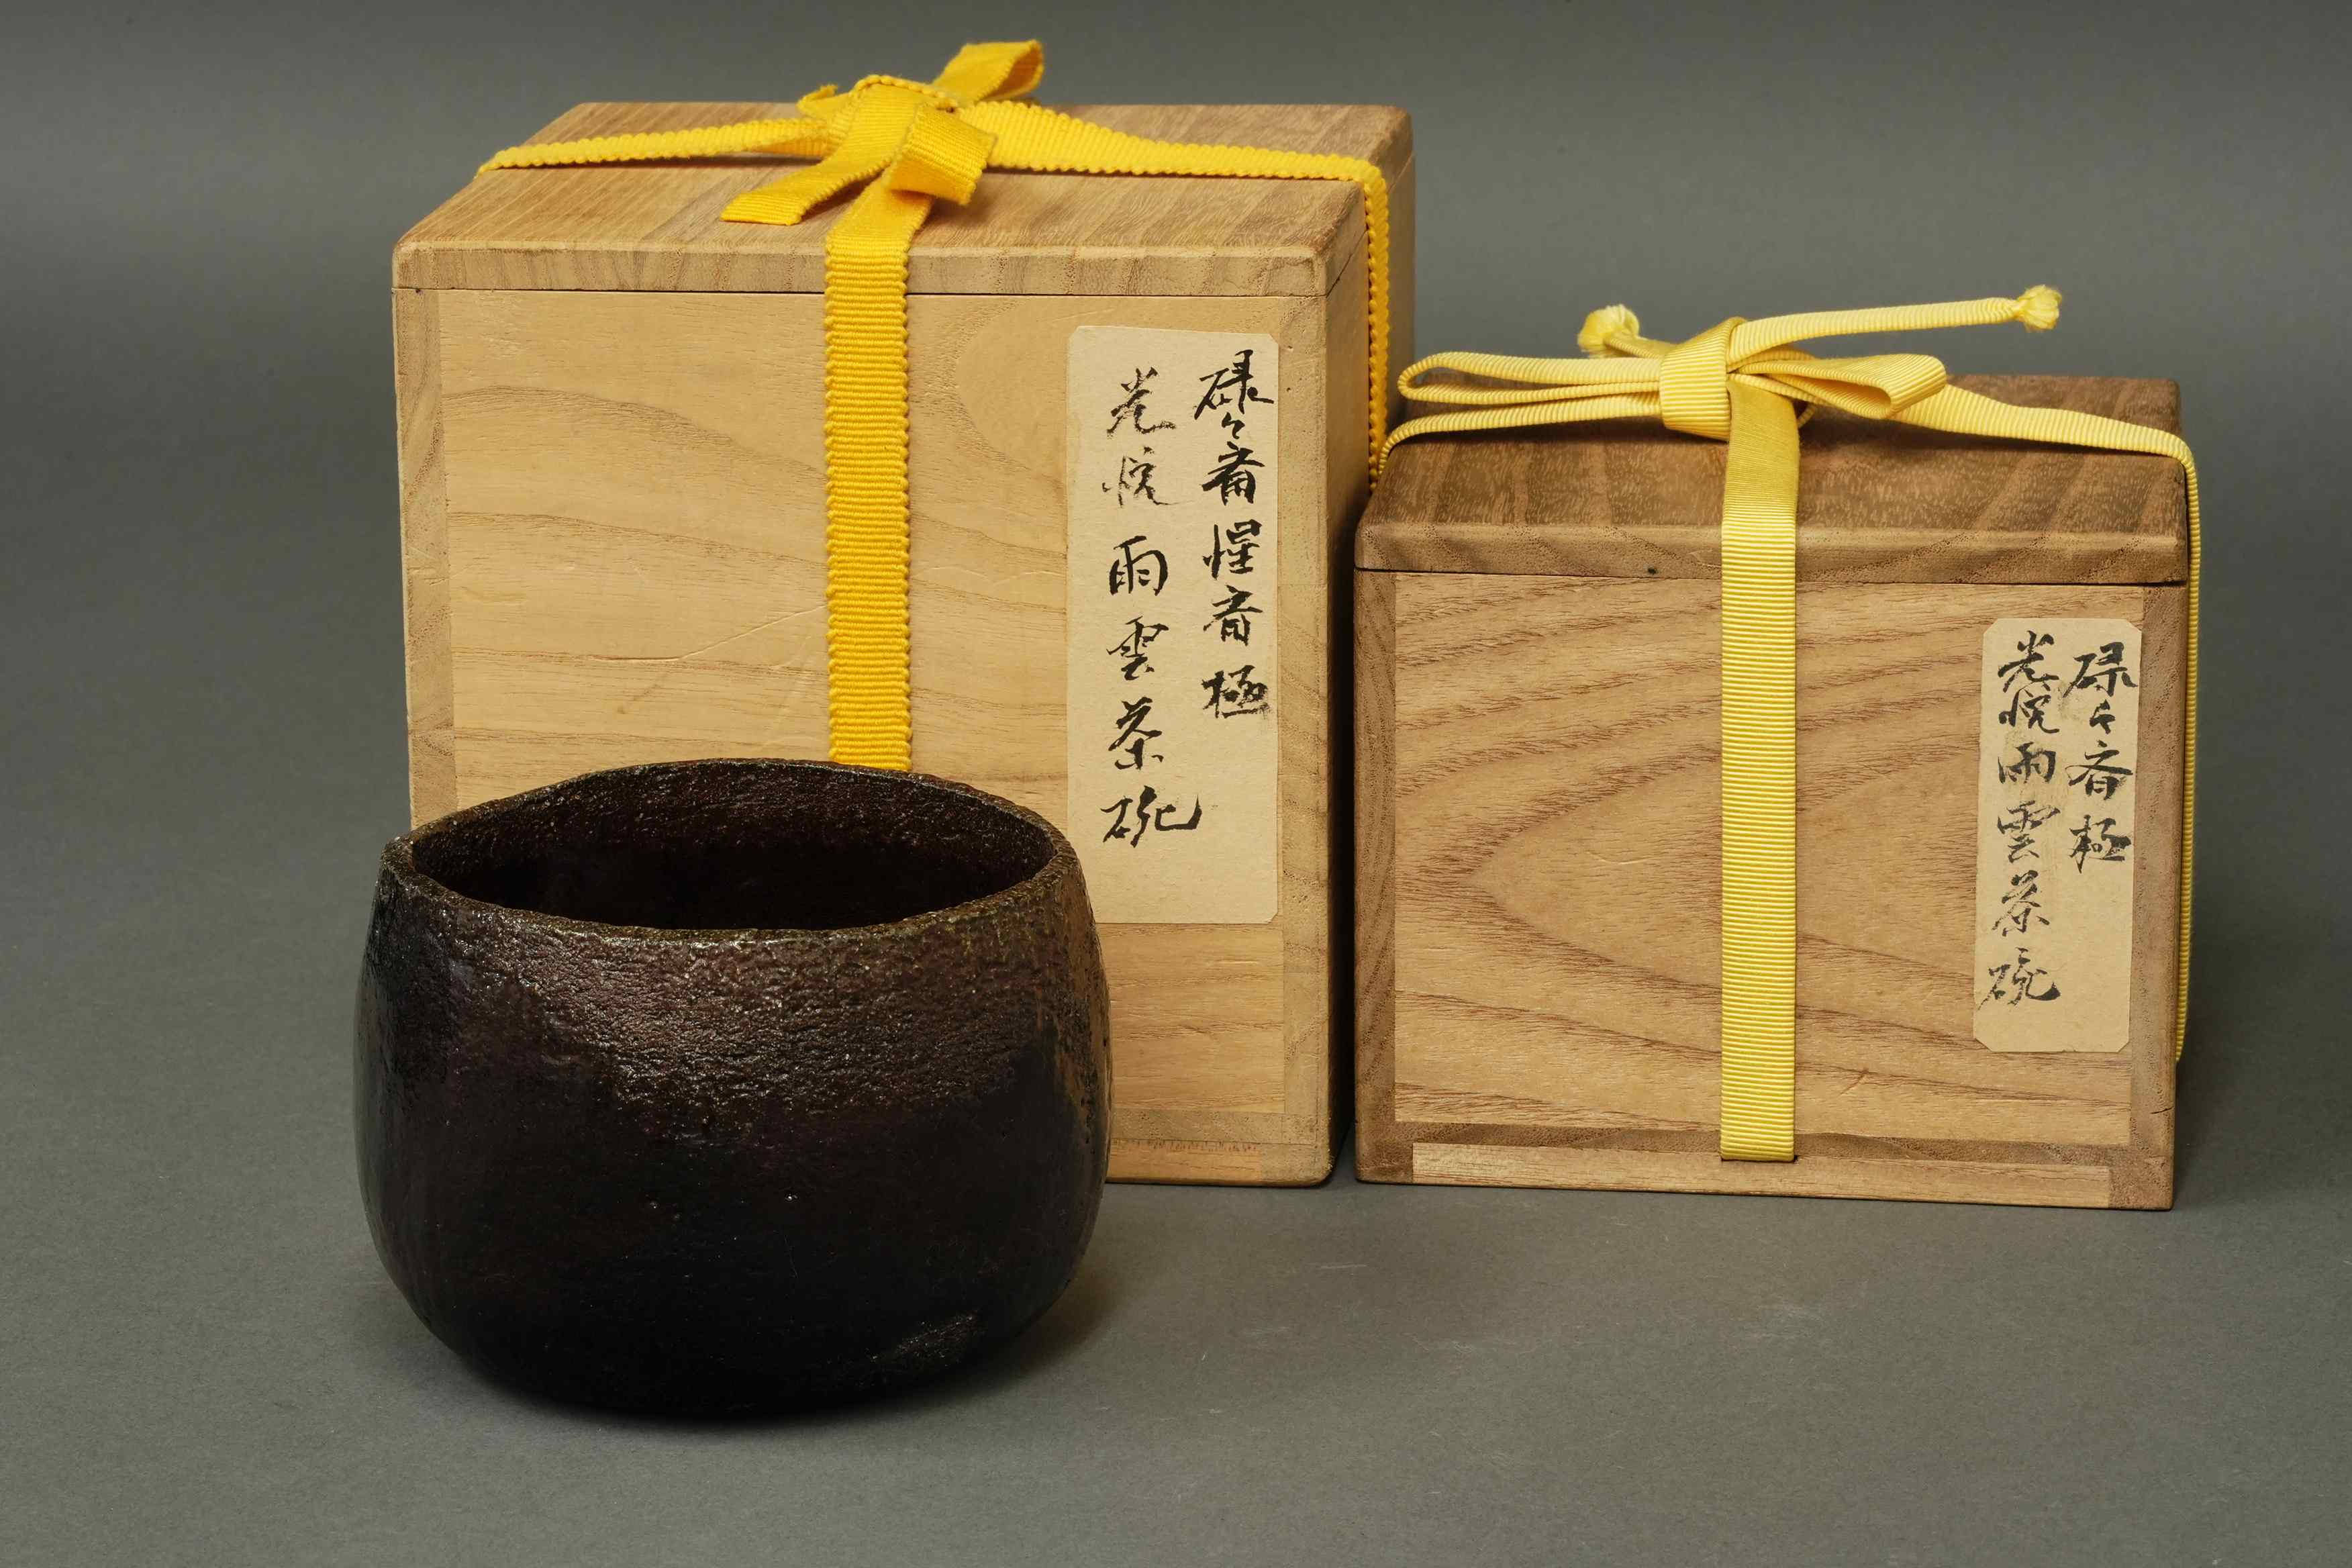 碌々斎惺斎極
光悦雨雲茶碗
碌々斎極
光悦雨雲茶碗